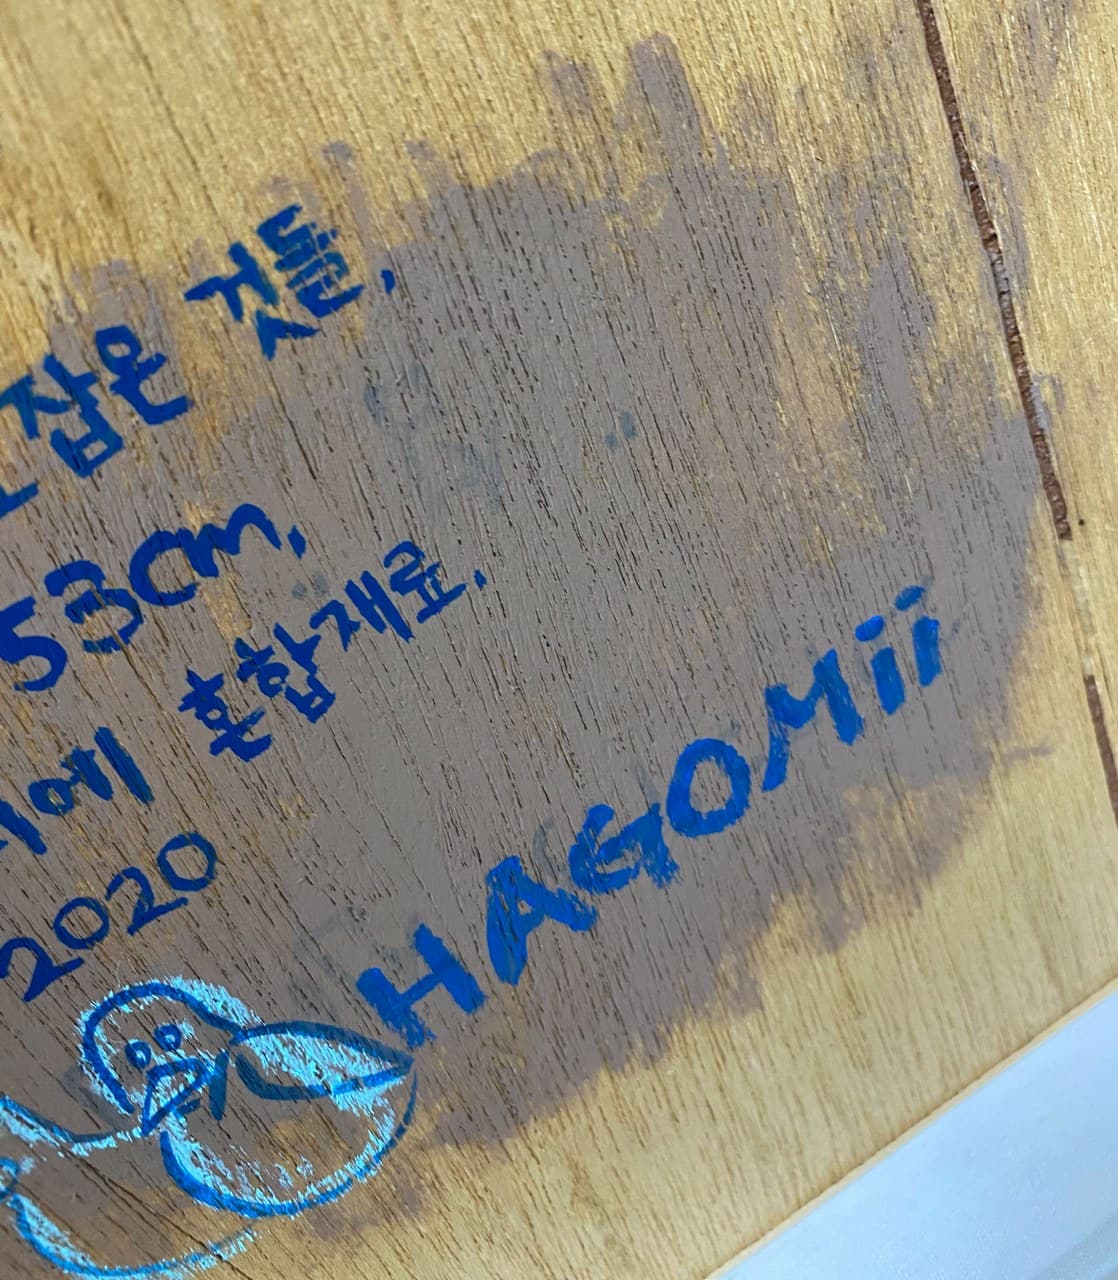 잡은 것들,
53cm,
에 혼합재료.
2020
HAGOMii